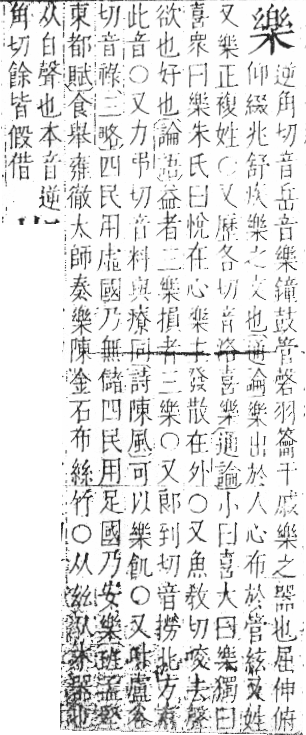 樂 逆角切音岳音樂鐘鼓管磬羽籥干戚樂之器也屈伸俯
仰綴兆舒疾樂之文也通論樂出於人心布於管絃又姓
又樂正複姓○又歷各切音洛喜樂通論小曰喜大曰樂獨曰
喜衆曰樂朱氏曰悅在心樂主發散在外○又魚敎切咬去聲
欲也好也論語益者三樂損者三樂○又郞到切音撈北方
此音○又力弔切音料與療同詩陳風可以樂飢○又叶盧谷
切音祿三略四民用虛國乃無儲四民用足國乃安樂班孟堅
東都賦食舉雍徹太師奏樂陳金石布絲竹○从
从白聲也本音逆
角切餘皆假借